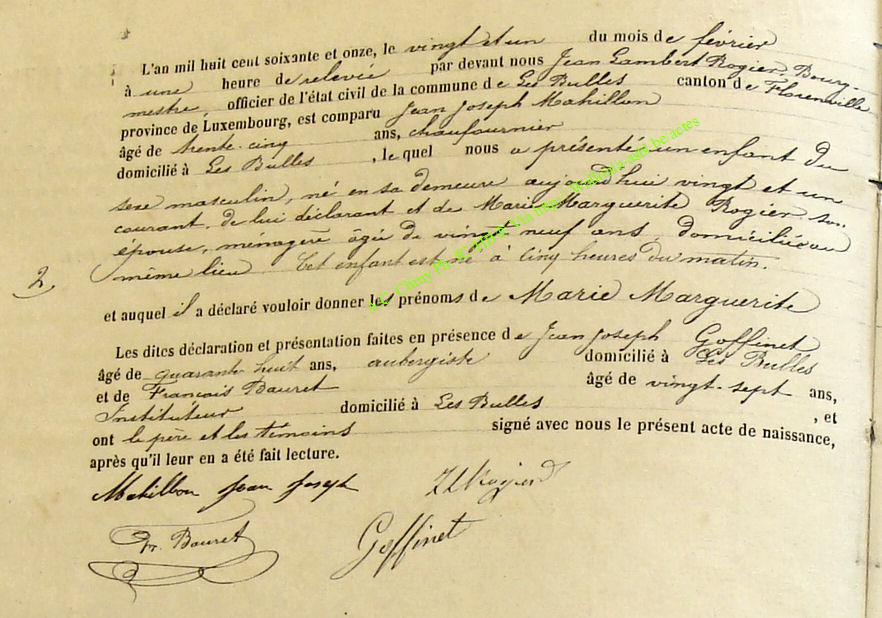 L'an mil huit cent soixante et onze, le vingt et un du mois de février
à une heure de relevée par devant nous Jean Lambert Rogier, Bourg-
mestre officier de l'état civil de la commune de Les Bulles canton de Florenville
province de Luxembourg, est comparu Jean Joseph Mahillon
âgé de trente-cinq ans, chaufournier
domicilié à Les Bulles, le quel nous a présenté un enfant du
sexe masculin, né en sa demeure aujourd'hui vingt et un
courant, de lui déclarant et de Marie Marguerite Rogier son
épouse, ménagère âgée de vingt neuf ans, domiciliée au
même lieu Cet enfant est né à cinq heures du matin.
2
et auquel il a déclaré vouloir donner les prénoms de Marie Marguerite
Les dites déclaration et présentation faites en présence de Jean Joseph Goffinet
âgé de quarante huit ans, aubergiste domicilié à Les Bulles
et de François Bauret âgé de vingt-sept ans,
Instituteur domicilié à Les Bulles, et
ont le père et les témoins signé avec nous le présent acte de naissance,
après qu'il leur en a été fait lecture.
Mahillon Jean Joseph JL Rogier
Fr. Bauret Goffinet